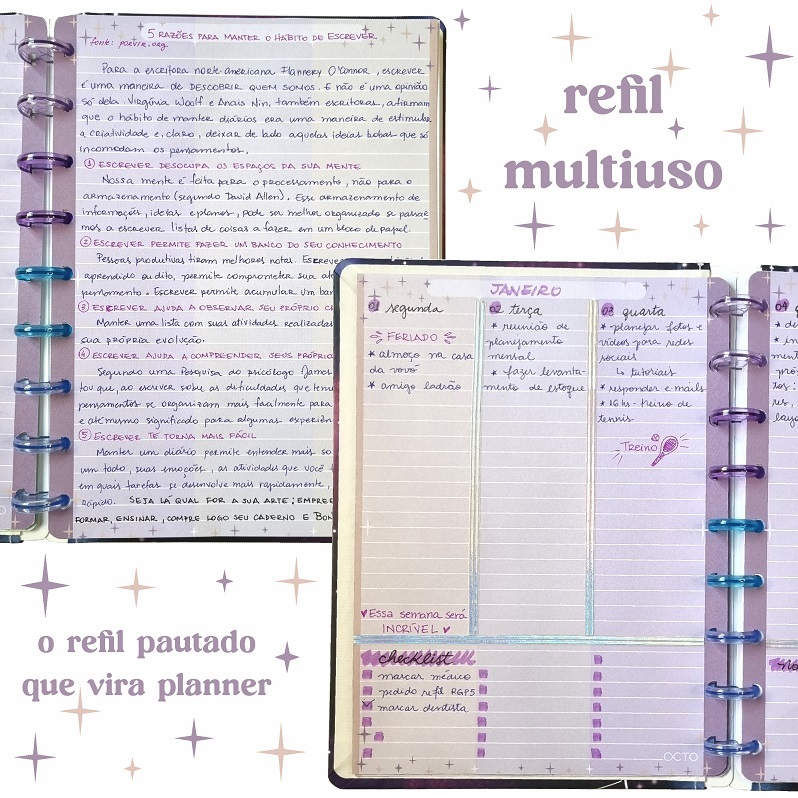 5 RAZÕES PARA MANTER O HÁBITO DE ESCREVER
fonte: porvir.org
Para a escritora norte-americana Flannery O'Connor, escrever
é uma maneira de DESCOBRIR QUEM SOMOS. E não é uma opinião
só dela. Virgínia Woolf e Anais Nin, também escritoras, afirmam
que o hábito de manter diários era uma maneira de estimular
a criatividade e, claro, deixar de lado aquelas ideias bobas que só
incomodam os pensamentos.
① ESCREVER DESOCUPA OS ESPAÇOS DA SUA MENTE
Nossa mente é feita para o processamento, não para o
armazenamento (segundo David Allen). Esse armazenamento de
informações, ideias e planos, pode ser melhor organizado se passar
mos a escrever listas de coisas a fazer em um bloco de papel.
② ESCREVER PERMITE FAZER UM BANCO DO SEU CONHECIMENTO
Pessoas produtivas tiram melhores notas. Escrever
aprendido ou dito, permite comprometer sua
pensamento. Escrever permite acumular um
③ ESCREVER AJUDA A OBSERVAR SEU PRÓPRIO
Manter uma lista com suas atividades realizadas
sua própria evolução.
④ ESCREVER AJUDA A COMPREENDER SEUS PRÓPRIO
Segundo uma Pesquisa do psicólogo James
tou que, ao escrever sobre as dificuldades que
pensamentos se organizam mais facilmente para
e até mesmo significado para algumas
⑤ ESCREVER TE TORNA MAIS FÁCIL
Manter um diário permite entender mais so
um todo, suas emoções, as atividades que você
em quais tarefas se desenvolve mais rapidamente,
rápido. SEJA LÁ QUAL FOR A SUA ARTE; EMPREE
FORMAR, ENSINAR, COMPRE LOGO SEU CADERNO E BON
refil
multiuso
JANEIRO
01 segunda
FERIADO
★ almoço na casa
da vovó
★ amigo ladrão
♥Essa semana será
INCRÍVEL ♥
02 terça
★ reunião de
planejamento
mensal
★ fazer levanta-
mento de estoque
03 quarta
★ planejar fotos e
vídeos para redes
sociais
↳ tutoriais
★ responder e-mails
★ 16hs - treino de
tennis
Treino
04
checklist
marcar médico
pedido refil RGPS
marcar dentista
OCTO
o refil pautado
que vira planner